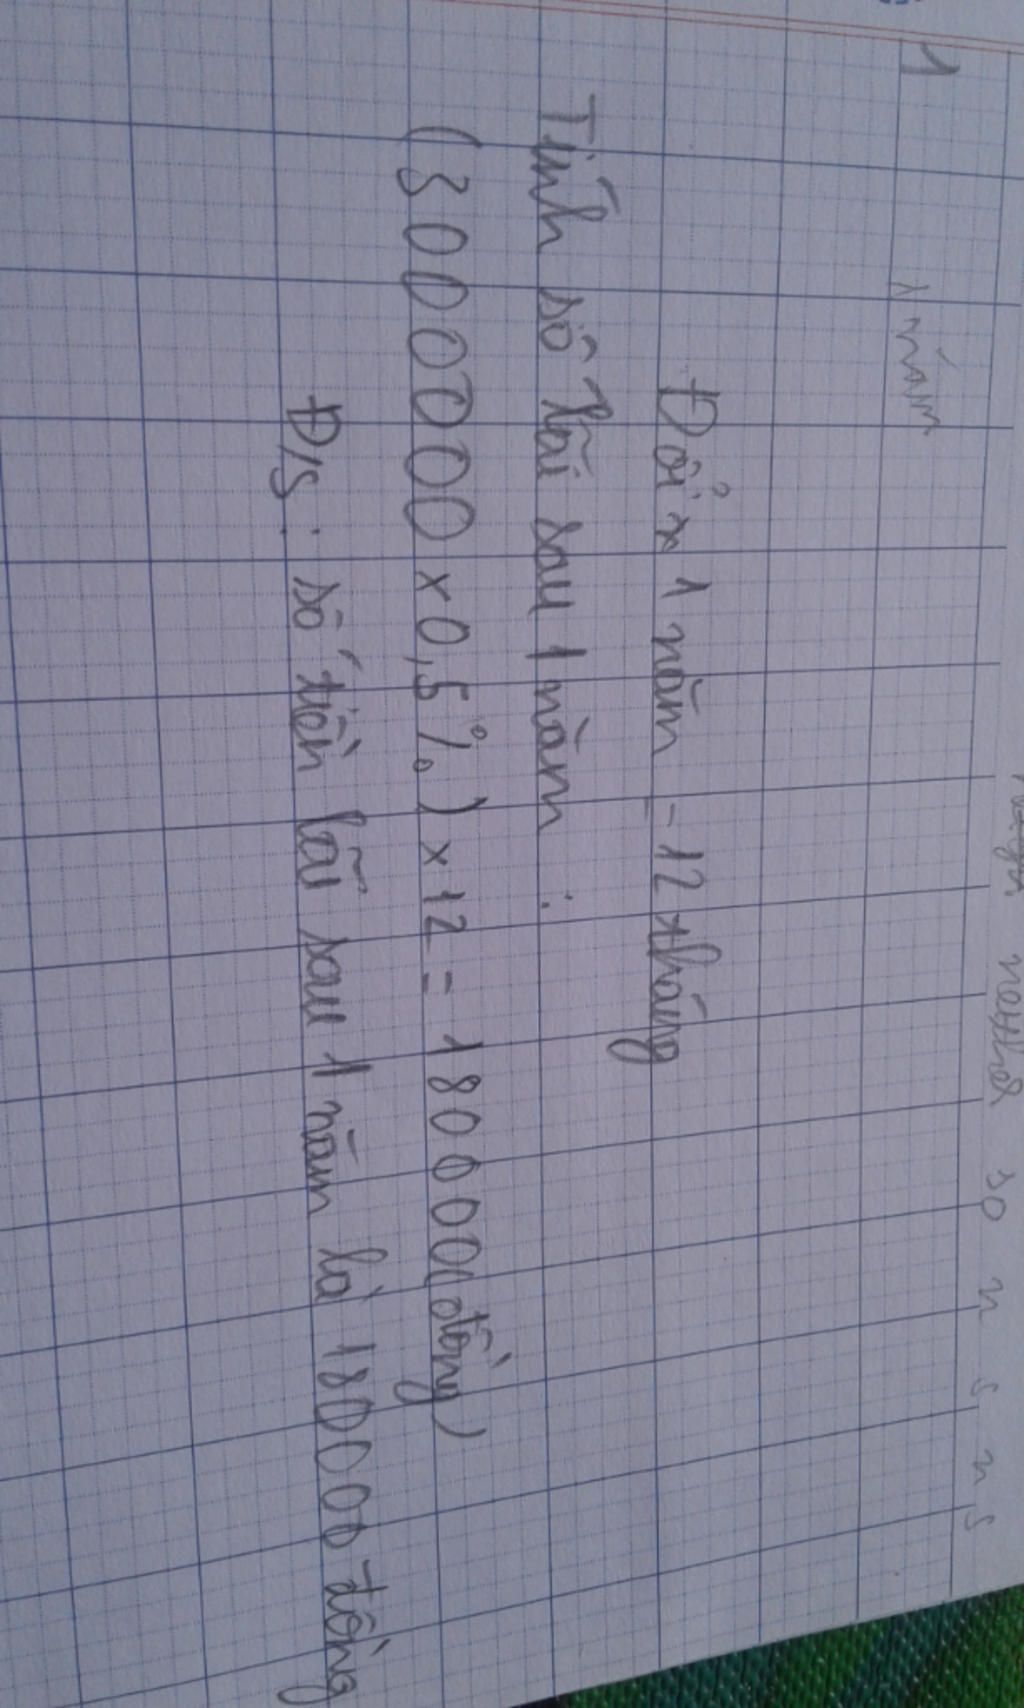 1
1 năm
Đổi 1 năm = 12 tháng
Tính số lãi sau 1 năm :
(3000000 x 0,5%) x 12 = 180000 (đồng)
Đ/s : số tiền lãi sau 1 năm là 180000 đồng